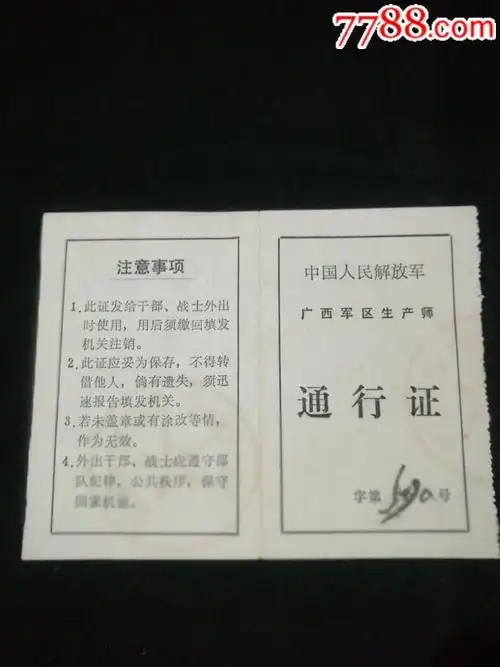 7788.com
注意事项
1.此证发给干部、战士外出
时使用，用后须缴回填发
机关注销。
2.此证应妥为保存，不得转
借他人，倘有遗失，须迅
速报告填发机关。
3.若未盖章或有涂改等情，
作为无效。
4.外出干部、战士应遵守部
队纪律，公共秩序，保守
国家机密。
中国人民解放军
广西军区生产师
通行证
字第 号